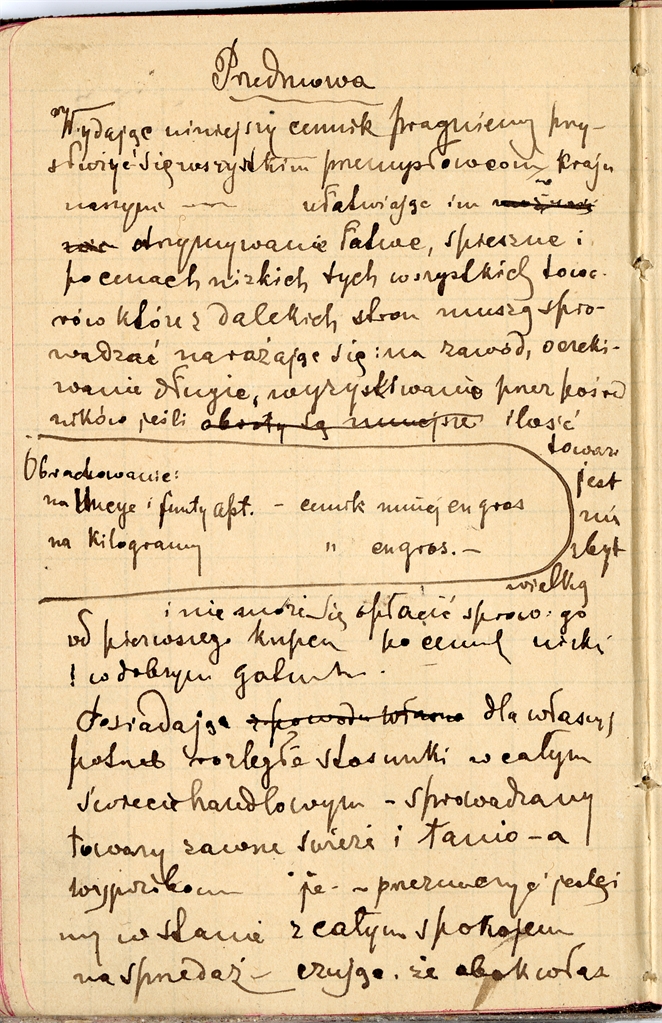 Przedmowa
Wydając niniejszy cennik pragniemy przy-
służyć się wszystkim przemysłowcom kraju
naszym ułatwiając im
otrzymywanie łatwe, spieszne i
po cenach nizkich tych wszystkich towa-
rów które z dalekich stron muszą spro-
wadzać narażając się: na zawód, oczeki-
wanie długie, wyzyskiwanie przez pośred
ników, jeśli obroty są mniejsze ilość
towaru
jest
nie
zbyt
wielką
Obrachowanie:
na Uncye i funty apt. - cennik mniej en gros
na Kilogramy " en gros. -
i nie może się opłacić sprow. go
od pierwszego kupca po cenie nizki
i w dobrym
Posiadając z powodu własne dla własnej
potrzeb rozległe stosunki w całym
świecie handlowym - sprowadzamy
towary zawsze świeże i tanio - a
je - jesteś
my w stanie z całym spokojem
na sprzedaż - czując, że obok włas